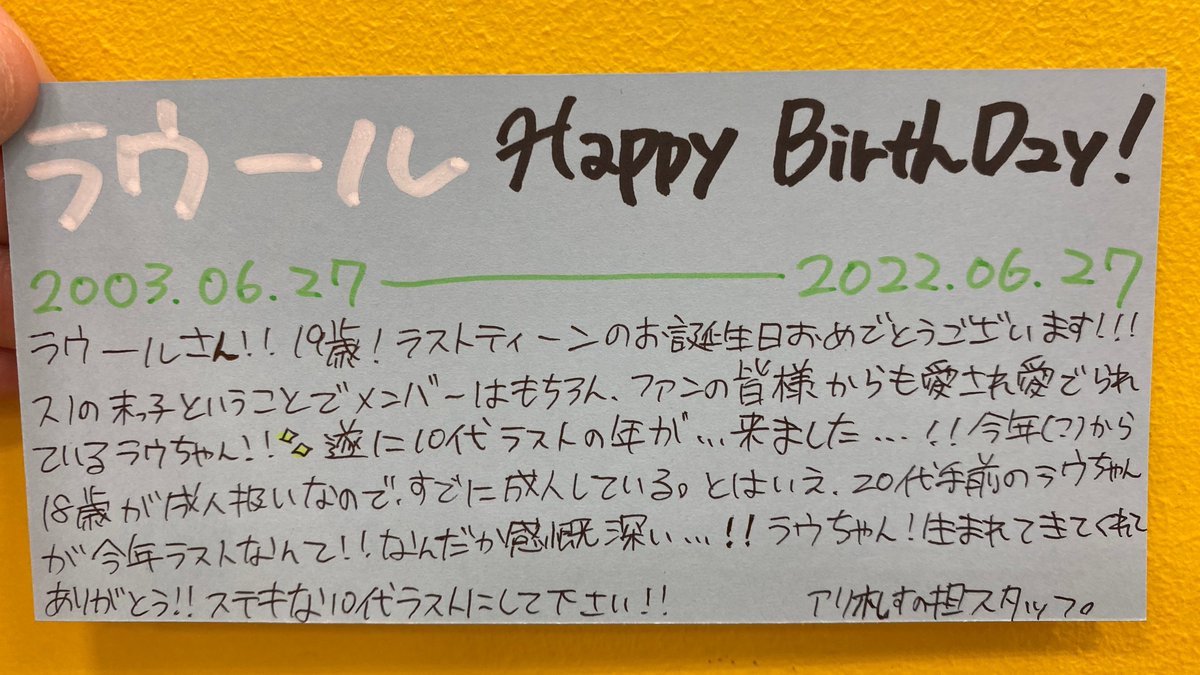 ラウール Happy BirthDay!
2003.06.27 ― 2022.06.27
ラウールさん!! 19歳! ラストティーンのお誕生日おめでとうございます!!!
スノの末っ子ということでメンバーはもちろん、ファンの皆様からも愛され愛でられ
ているラウちゃん!! 遂に10代ラストの年が…来ました…!! 今年(?)から
18歳が成人扱いなので、すでに成人している。とはいえ、20代手前のラウちゃん
が今年ラストなんて!! なんだか感慨深い…!! ラウちゃん!生まれてきてくれて
ありがとう!! ステキな10代ラストにして下さい!! アリ札すの担スタッフ。